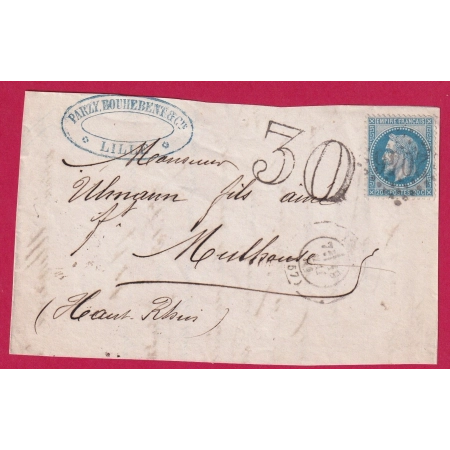 PARZY, BOUHEBENT & Cie
LILLE
30
EMPIRE FRANÇAIS
20 C POSTES 20 C
Monsieur
Ulmann fils ainé
Mulhouse
(Haut-Rhin)
(57)